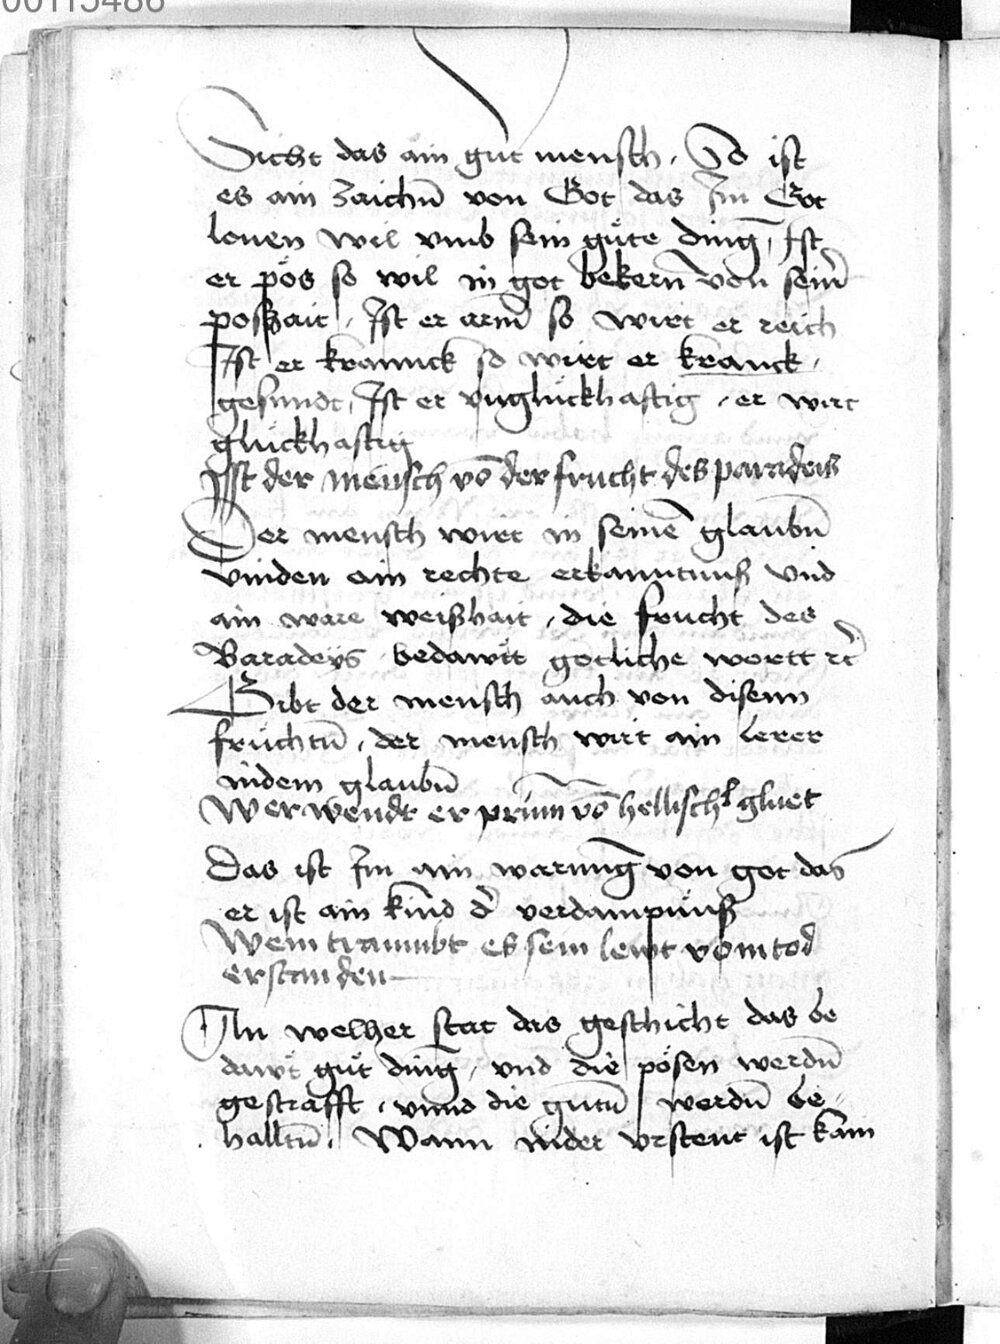 00115486
Sicht das ain gut mensch. So ist
es ain zaichn̄ von Got das Im Got
lonen wil vmb sein gůte ding, Ist
er pös so wil in got bekern̄ von sein̄
poszhait, Ist er arm so wirt er reich
Ist er krannck so wirt er kranck,
gesundt, Ist er vnglückhafftig, er wirt
glückhafftig
Isst der mensch vō der frucht des paradeis
Der mensch wirt in seinē glaubn̄
vinden ain rechte erkanntnuß vnd
ain ware weißhait, die frucht des
Baradeys bedawtt gotliche wortt rc̄
Gibt der mensch auch von disenn
früchtn̄, der mensch wirt ain lerer
in dem glaubn̄
Wer wendt er prinn vō hellischr gluet
Das ist Im ain warnung von got das
er ist ain kind d' verdampnuß
Wem trawmbt es sein lewt vom tod
erstanden
In welher stat das geschicht das be
dawt gůt ding, vnd die pösen werdn̄
gestrafft, vnnd die gutn̄ werdn̄ be-
halltn̄. Wann in der vrstent ist kain